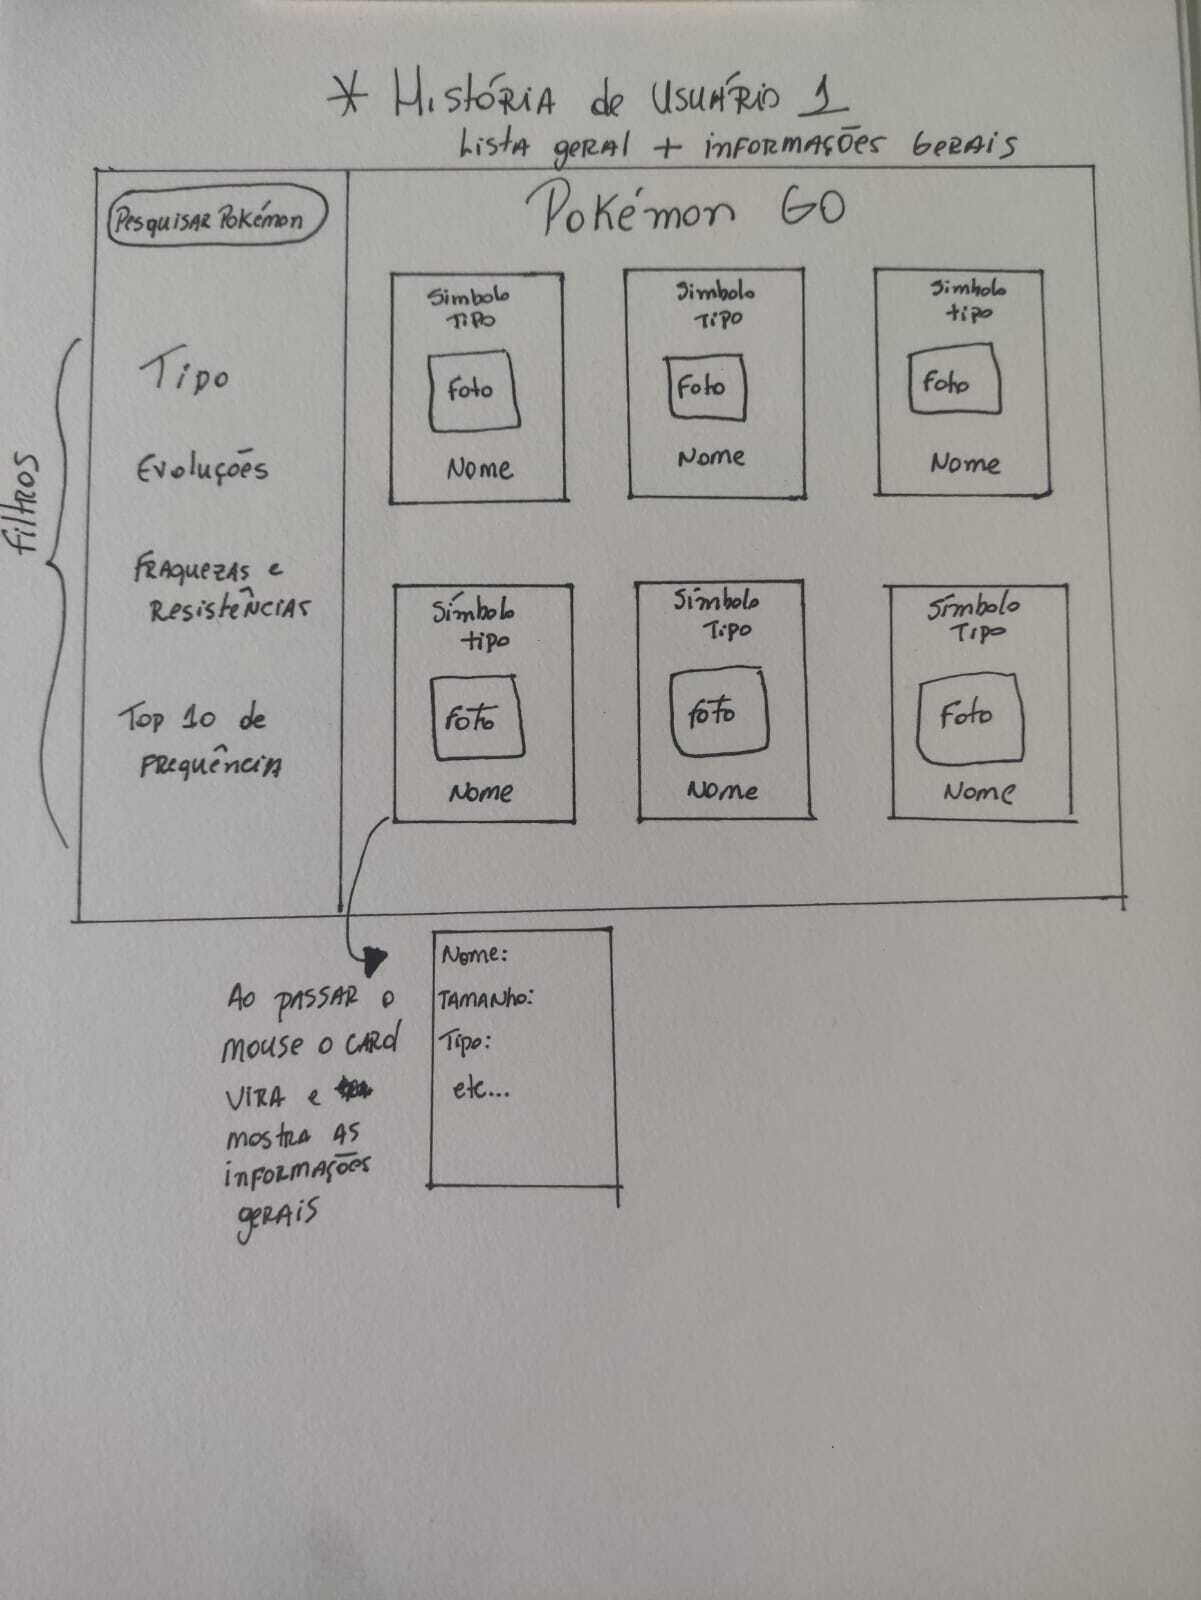 * História de Usuário 1
Lista geral + informações Gerais
Pesquisar Pokémon
Pokémon GO
Filtros
Tipo
Evoluções
Fraquezas e
Resistências
Top 10 de
Frequência
Simbolo
Tipo
Foto
Nome
Simbolo
Tipo
Foto
Nome
Simbolo
tipo
Foto
Nome
Símbolo
tipo
Foto
Nome
Símbolo
Tipo
Foto
Nome
Símbolo
Tipo
Foto
Nome
Ao passar o
mouse o card
vira e
mostra as
informações
gerais
Nome:
Tamanho:
Tipo:
etc...